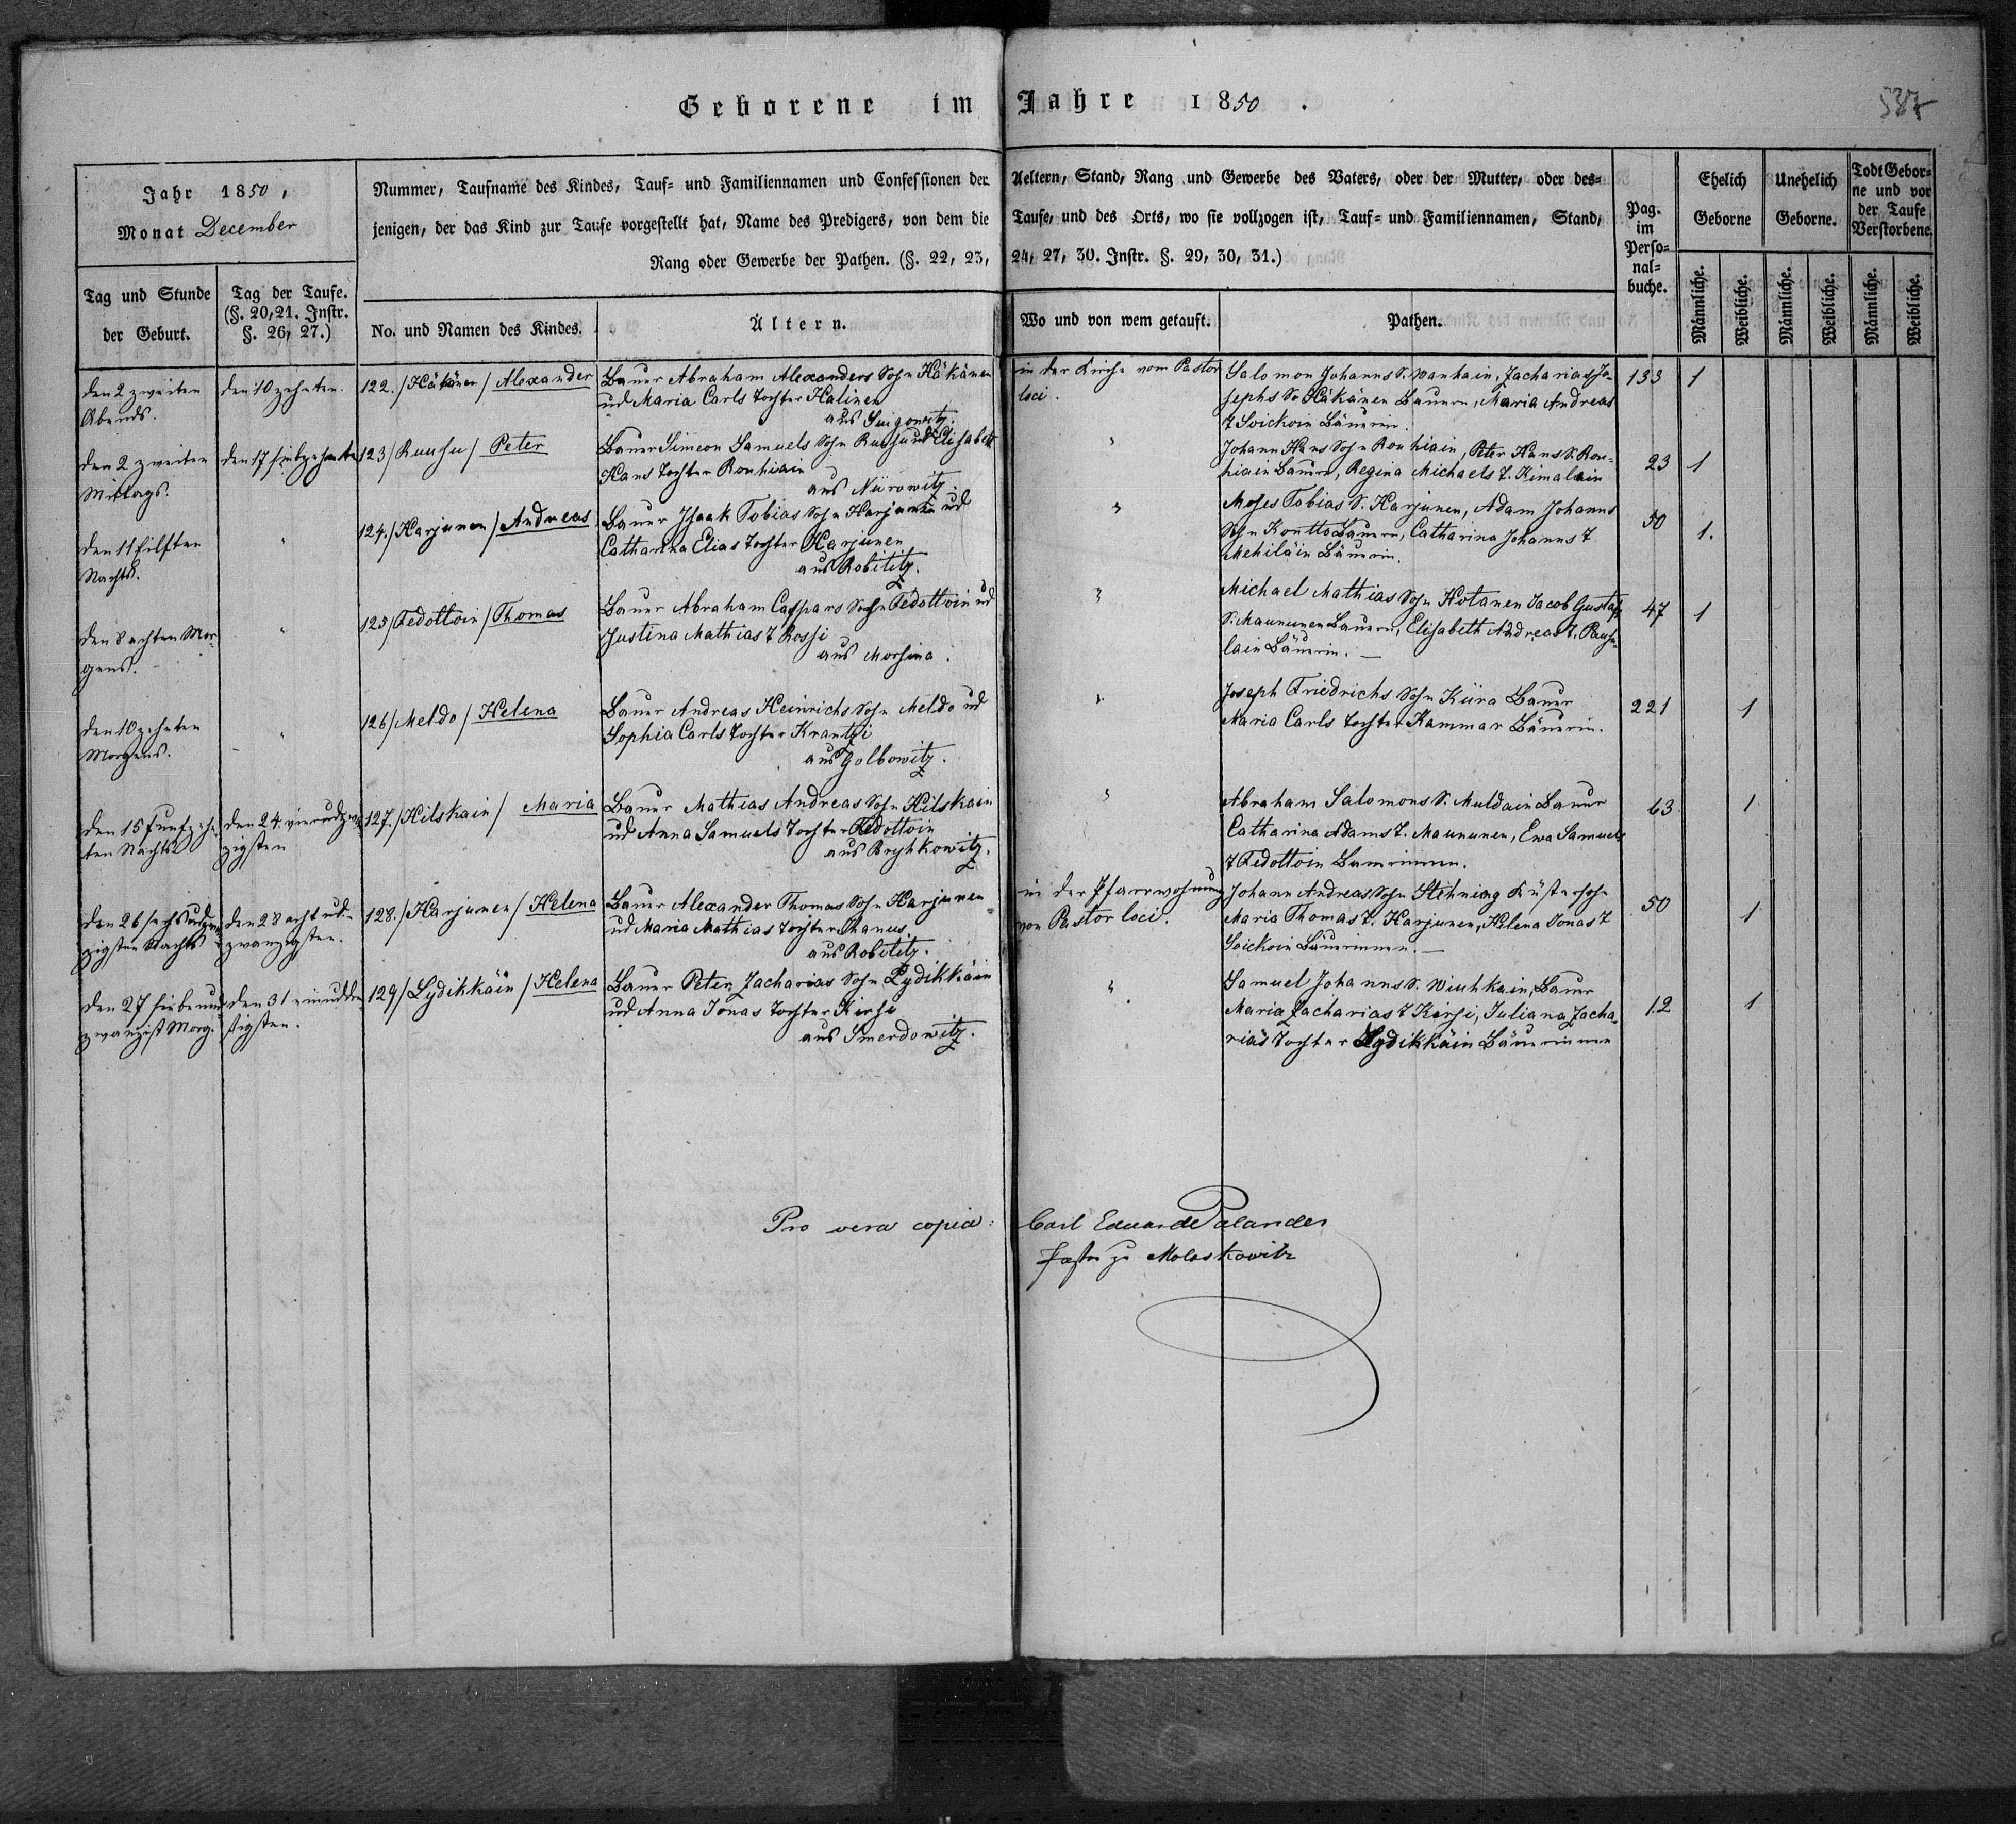 Geborene im Jahre 1850.
587
Jahr 1850,
Monat December
Nummer, Taufname des Kindes, Tauf- und Familiennamen und Confessionen der Aeltern, Stand, Rang und Gewerbe des Vaters, oder der Mutter, oder des-
jenigen, der das Kind zur Taufe vorgestellt hat, Name des Predigers, von dem die Taufe, und des Orts, wo sie vollzogen ist, Tauf- und Familiennamen, Stand,
Rang oder Gewerbe der Pathen. (§. 22, 23, 24, 27, 30. Instr. §. 29, 30, 31.)
Pag.
im
Perso-
nal-
buche.
Ehelich
Geborne
Unehelich
Geborne.
Todt Gebor-
ne und vor
der Taufe
Verstorbene.
Tag und Stunde
der Geburt.
Tag der Taufe.
(§. 20, 21. Instr.
§. 26, 27.)
No. und Namen des Kindes.
Ältern.
Wo und von wem getauft.
Pathen.
Männliche.
Weibliche.
Männliche.
Weibliche.
Männliche.
Weibliche.
den 2 zweiten
Abends.
den 10 zehnten.
122./Häkänen/Alexander
Bauer Abraham Alexanders Sohn Häkänen
ud Maria Carls Tochter Halinen
aus Guigowitz.
in der Kirche vom Pastor
loci.
Salomon Johanns S. Wanhain, Zacharias Jo-
sephs S. Häkänen Bauern, Maria Andreas
T Soickoin Bäuerin.
133
1
den 2 zweiten
Mittags.
den 17 siebzehnten
123/Ruusu/Peter
Bauer Simeon Samuels Sohn Ruusu ud Elisabeth
Hans Tochter Rouhiain
aus Niürowitz.
"
Johann Hans Sohn Rouhiain, Peter Hans S. Rou-
hiain Bauern, Regina Michaels T. Kimalain
23
1
den 11 Eilften
Nachts.
"
124./Harjunen/Andreas
Bauer Isaak Tobias Sohn Harjunen ud
Catharina Elias Tochter Harjunen
aus Robititz.
"
Moses Tobias S. Harjunen, Adam Johanns
Sohn Kontto Bauern, Catharina Johanns T
Mehiläin Bäuerin.
50
1.
den 8 achten Mor-
gens.
"
125/Fedottoin/Thomas
Bauer Abraham Caspars Sohn Fedottoin ud
Justina Mathias T Rossi
aus Morsina.
"
Michael Mathias Sohn Hotanen Jacob Gustafs
S. Maununen Bauern, Elisabeth Andreas T. Pausu-
lain Bäuerin.
47
1
den 10 zehnten
Morgens.
"
126/Meldo/Helena
Bauer Andreas Heinrichs Sohn Meldo ud
Sophia Carls Tochter Krantzi
aus Golbowitz.
"
Joseph Friedrichs Sohn Kiira Bauer
Maria Carls Tochter Kammar Bäuerin.
221
1
den 15 funfzehn-
ten Nachts
den 24. vierudzwan-
zigsten
127./Hilskain/Maria
Bauer Mathias Andreas Sohn Hilskain
ud Anna Samuels Tochter Fedottoin
aus Bryhkowitz.
"
Abraham Salomons S. Muldain Bauer
Catharina Adams T. Maununen, Ewa Samuels
T Fedottoin Bäuerinnen.
63
1
den 26 sechsudzwan-
zigsten Nachts
den 28 acht ud-
zwanzigsten.
128./Harjunen/Helena
Bauer Alexander Thomas Sohn Harjunen
ud Maria Mathias Tochter Ranus.
aus Robititz.
in der Pfarrwohnung
von Pastor loci.
Johann Andreas Sohn Stehning Küstersohn
Maria Thomas T. Harjunen, Helena Jonas T
Soickoin Bäuerinnen.
50
1
den 27 siebenund
zwanzigst Morg.
den 31 einuddrei-
ßigsten.
129/Lydikkäin/Helena
Bauer Peter Zacharias Sohn Lydikkäin
ud Anna Jonas Tochter Kirsi
aus Smerdowitz.
"
Samuel Johanns S. Wiuhkain, Bauer
Maria Zacharias T Kirsi, Juliana Zacha-
rias Tochter Lydikkäin Bäuerinnen
12
1
Pro vera copia: Carl Eduard Palander
Pastor zu Moloskowitz